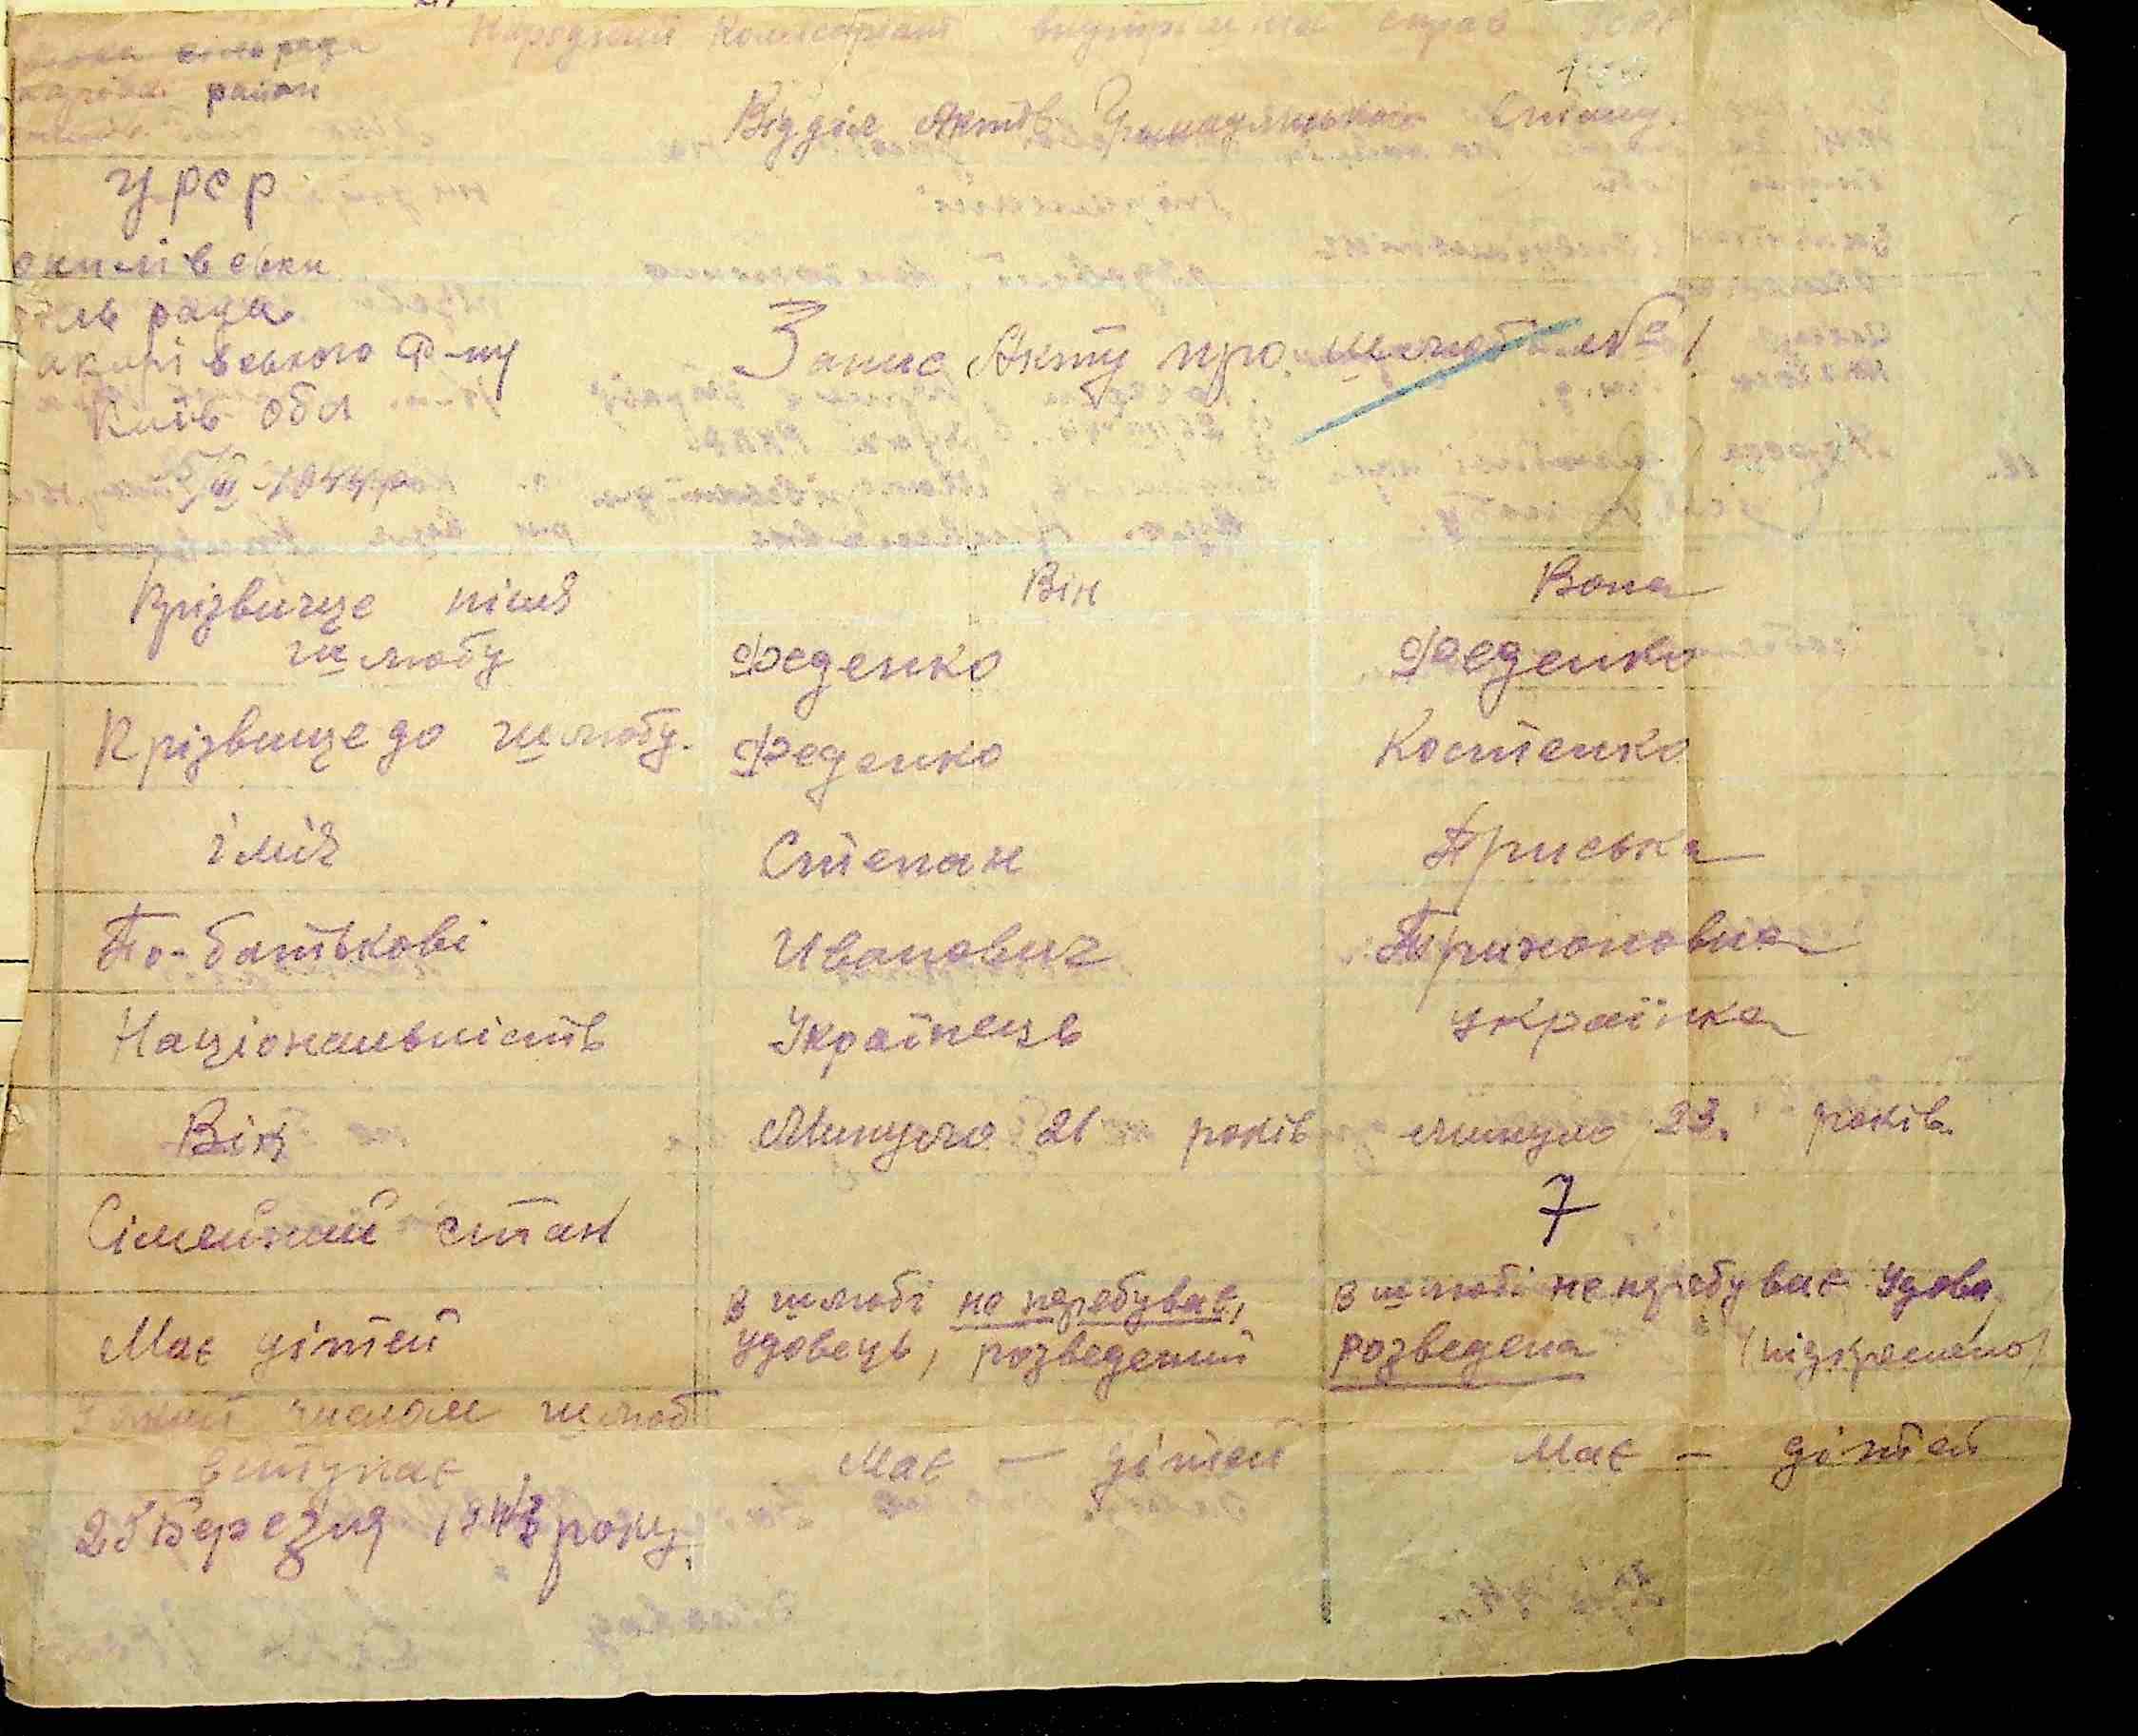 Народний Комісаріат внутрішніх справ УСРР
рада
район
Відділ Актів Громадянського Стану.
УРСР
сільрада
акарівського Р-ну
Київ обл
Запис Акту про шлюб № 1
5/III 1944 р
Прізвище після шлюбу
Він
Вона
Феденко
Феденко
Прізвище до шлюбу.
Феденко
Костенко
імія
Степан
Приська
По-батькові
Иванович
Трихоновна
Національність
Українець
Українка
Вік
Минуло 21 років
минуло 23. років.
Сімейний стан
7
в шлюбі не перебуває,
удовець, розведений
в шлюбі не перебуває Удова,
розведена (підкреслено)
Має дітей
Має — дітей
Має — дітей
числом шлюб
вступає
25 Березня 1943 року.